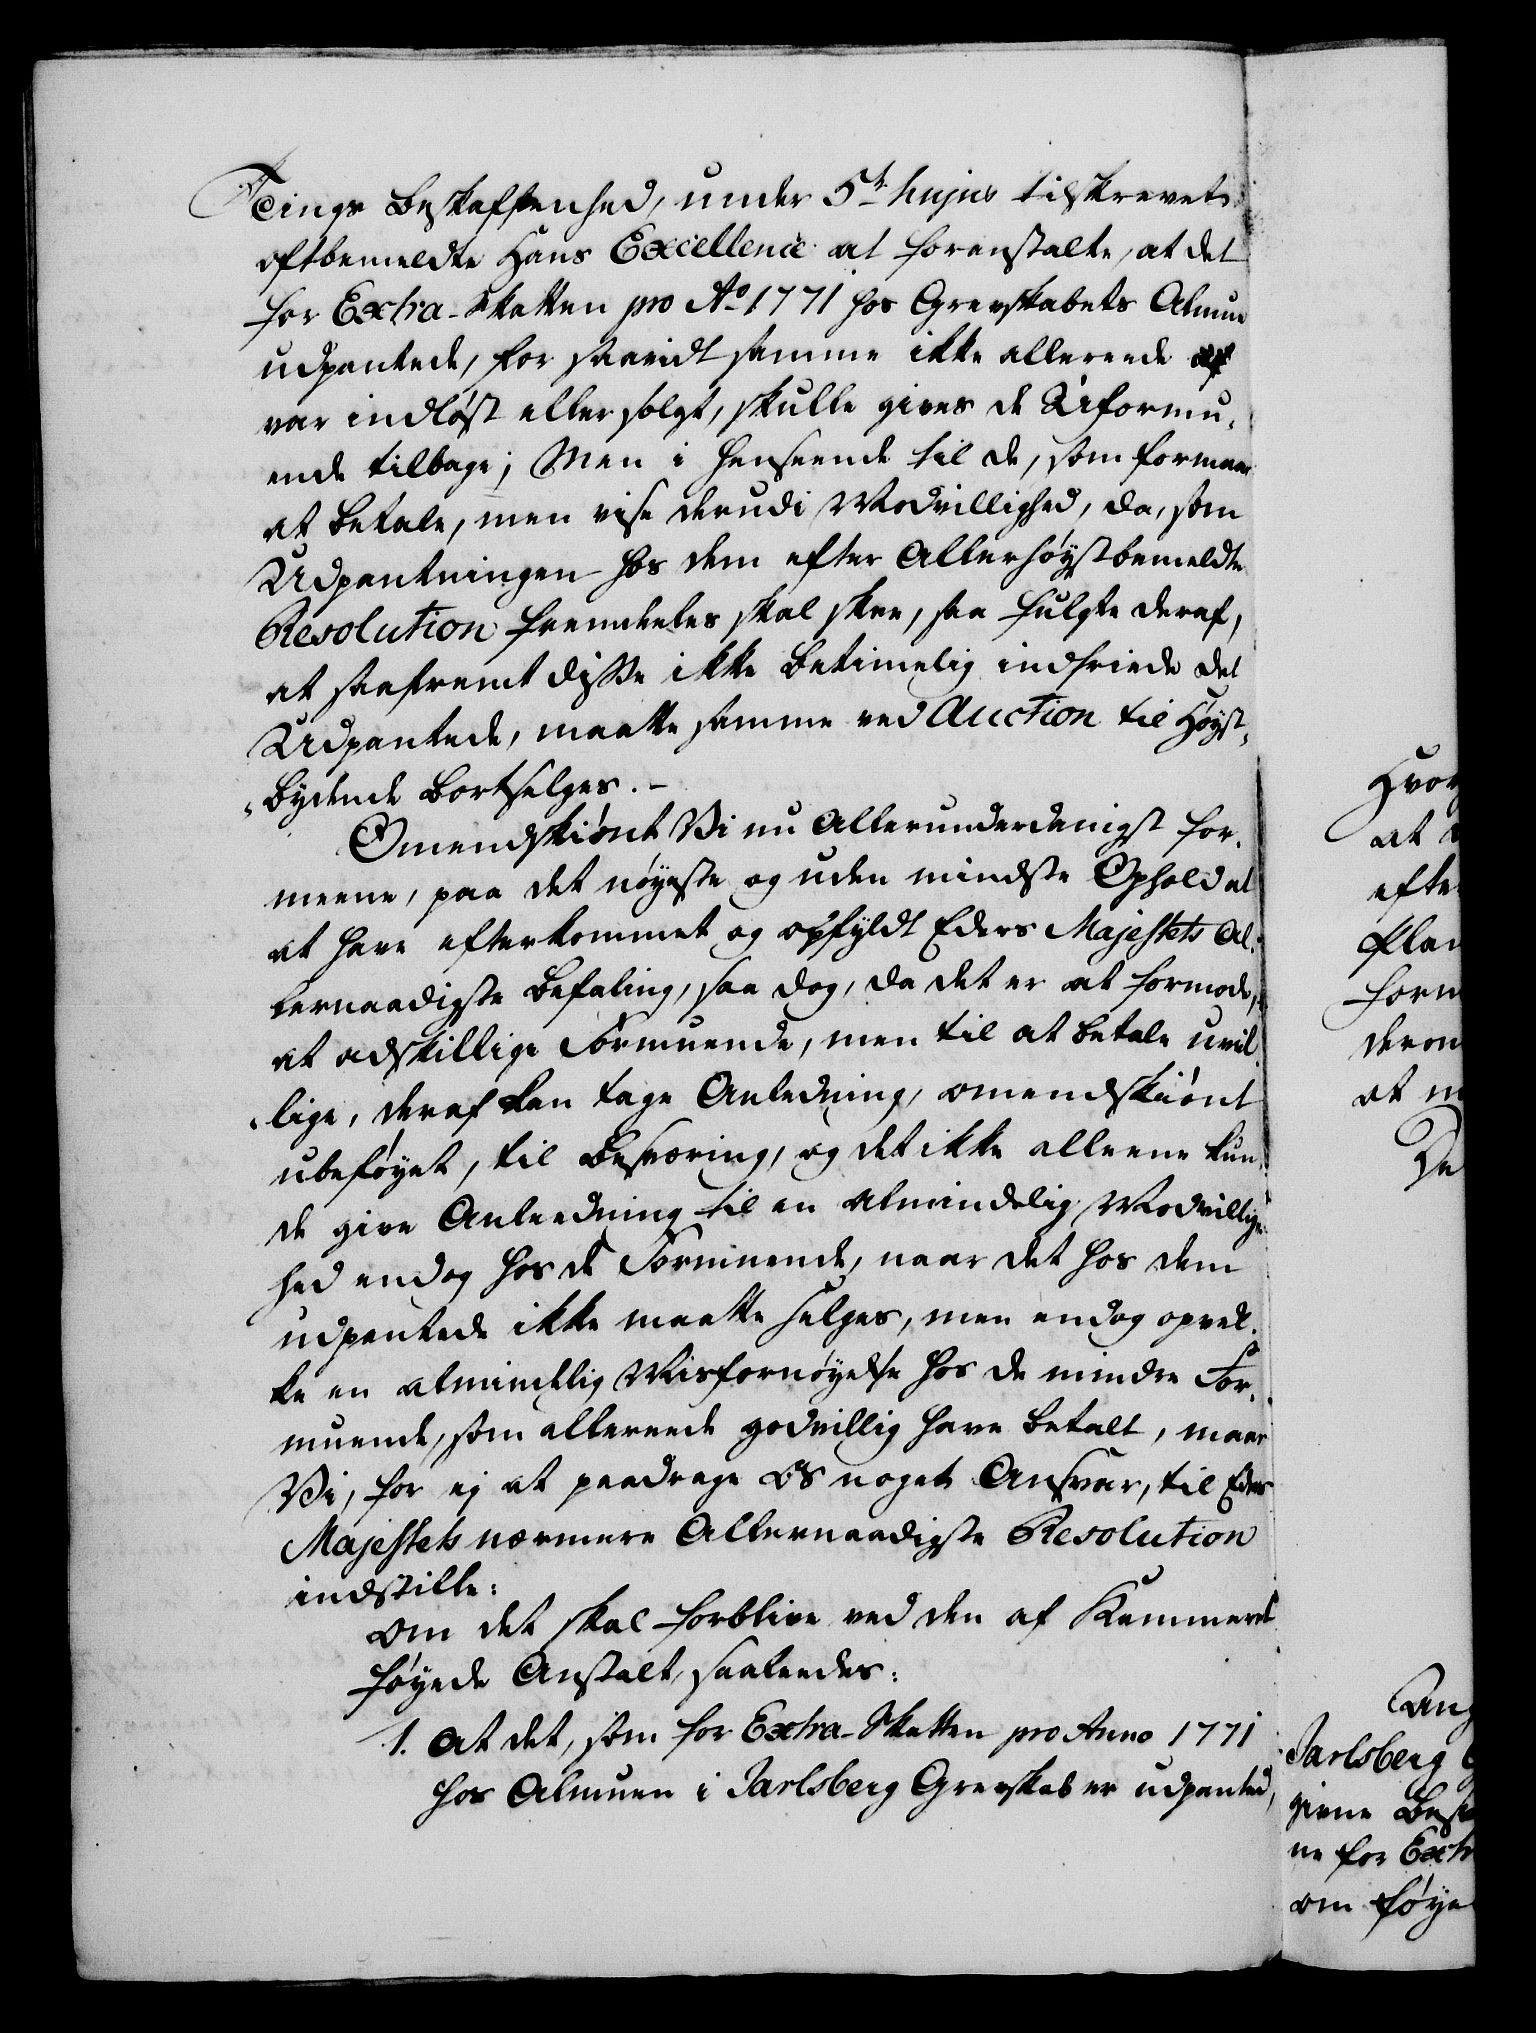 Tings Beskaffenhed, under 5te hujus tilskrevet
oftbemeldte Hans Excellence at foranstalte, at det
for Extra-Skatten pro Ao 1771 hos Grevskabets Almue
udpantede, for saavidt samme ikke allereede
var indløst eller solgt, skulle gives de Uformu-
ende tilbage; Men i Henseende til de, som formaae
at betale, men vise derudi Modvillighed, da, som
Udpantningen hos dem efter Allerhøystbemeldte
Resolution fremdeeles skal skee, saa fulgte deraf,
at saafremt disse ikke betimelig indfriede det
Udpantede, maatte samme ved Auction til Høyst-
bydende bortselges. -
Omendskiønt Vi nu Allerunderdanigst for-
meene, paa det nøyeste og uden mindste Ophold at
at have efterkommet og opfyldt Eders Majestets Al-
lernaadigste Befaling, saa dog, da det er at formode,
at adskillige Formuende, men til at betale uvil-
lige, deraf kan tage Anledning, omendskiønt
ubeføyet, til Besværing, og det ikke alleene kun-
de give Anleedning til en almindelig Modvillig-
hed endog hos de Formuende, naar det hos dem
udpantede ikke maatte selges, men endog opvek-
ke en almindelig Misfornøyelse hos de mindre For-
muende, som allereede godvillig have betalt, maae
Vi, for ej at paadrage os noget Ansvar, til Eders
Majestets nærmere Allernaadigste Resolution
indstille:
Om det skal forblive ved den af Kammeret
føyede Anstalt, saaleedes:
1. At det, som for Extra-Skatten pro Anno 1771
hos Almuen i Jarlsberg Grevskab er udpanted,
Hvor
at
efte
Plan
form
derom
at m
De
Ang
Jarlsberg G
givne Besk
ne for Extr
om føye